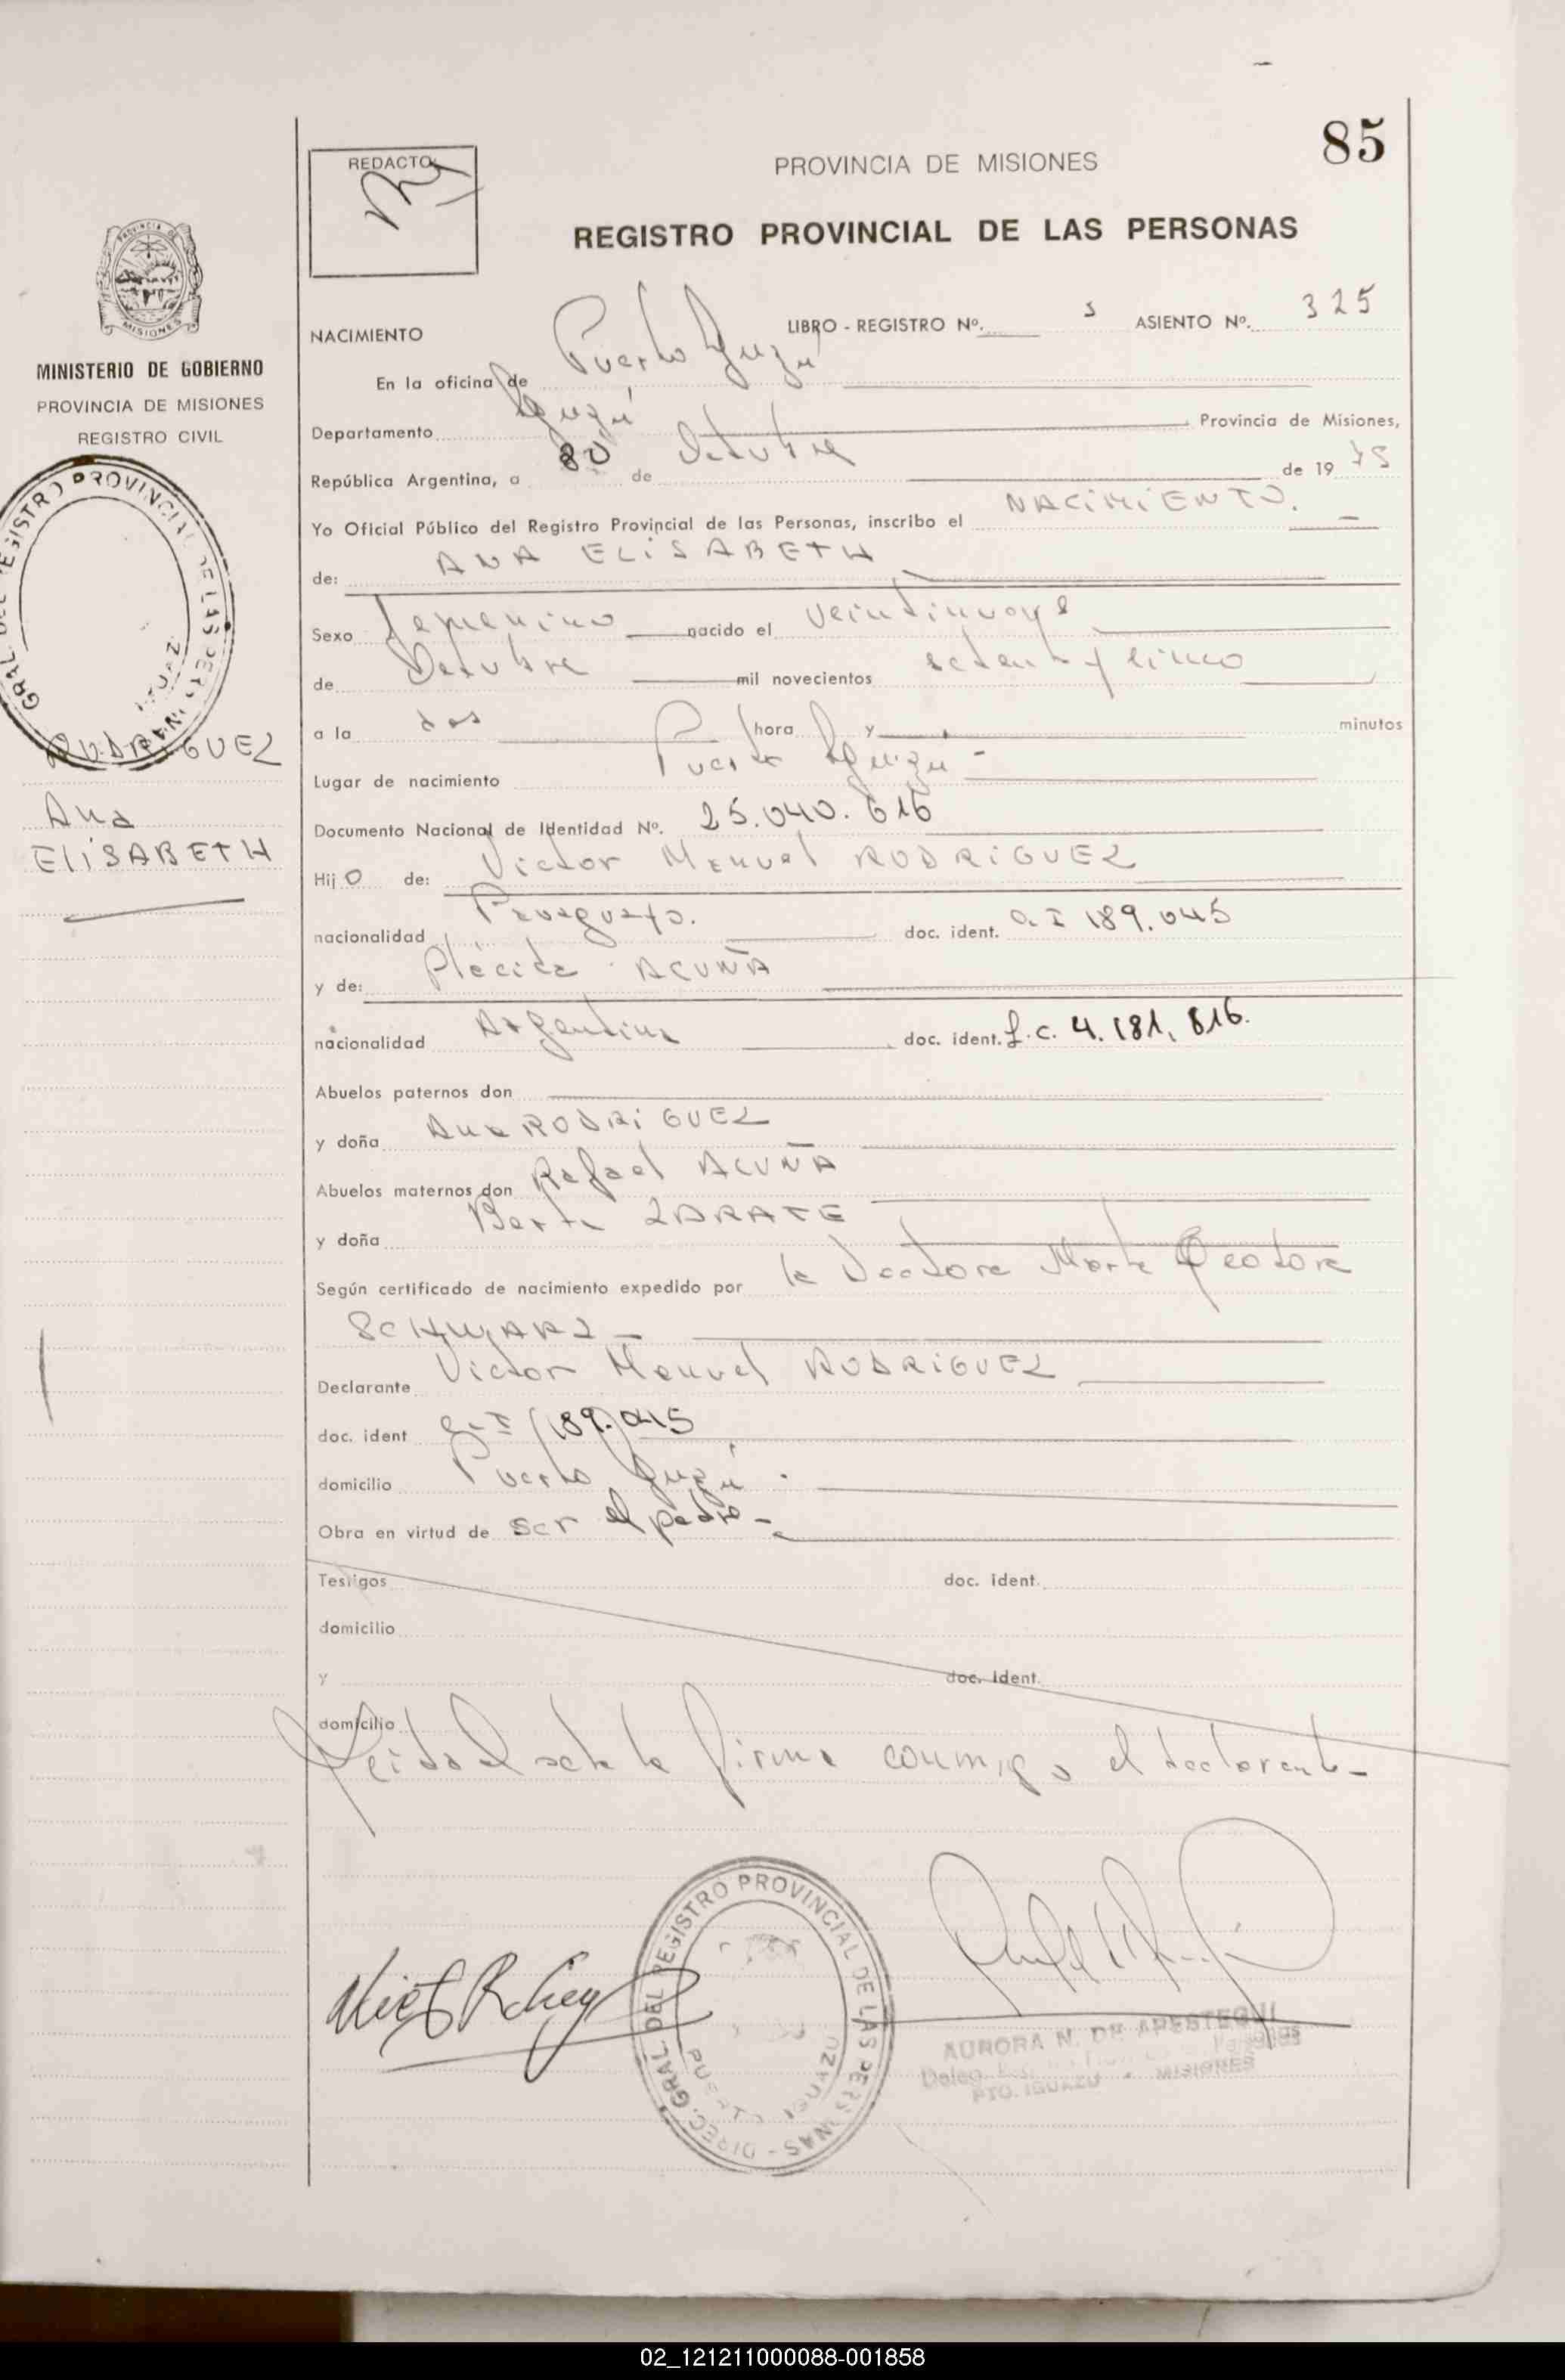 85
REDACTO:
PROVINCIA DE MISIONES
REGISTRO PROVINCIAL DE LAS PERSONAS
PROVINCIA DE
MISIONES
MINISTERIO DE GOBIERNO
PROVINCIA DE MISIONES
REGISTRO CIVIL
GRAL. DEL REGISTRO PROVINCIAL DE LAS PERSONAS
RODRIGUEZ
Ana
ELISABETH
NACIMIENTO LIBRO - REGISTRO Nº. 3 ASIENTO Nº. 325
En la oficina de Puerto Iguazú
Departamento Iguazú Provincia de Misiones,
República Argentina, a 30 de Octubre de 19 75
Yo Oficial Público del Registro Provincial de las Personas, inscribo el NACIMIENTO.
de: ANA ELISABETH
Sexo femenino nacido el veintinueve
de Octubre mil novecientos setenta y cinco
a la dos hora y minutos
Lugar de nacimiento Puerto Iguazú -
Documento Nacional de Identidad Nº. 25.040.616
Hijo de: Victor Manuel RODRIGUEZ
nacionalidad Paraguayo. doc. ident. C. I 189.045
y de: Plácida ACUÑA
nacionalidad Argentina doc. ident. L.C. 4.181.816.
Abuelos paternos don
y doña Ana RODRIGUEZ
Abuelos maternos don Rafael ACUÑA
y doña Berta ZARATE
Según certificado de nacimiento expedido por la Doctora Marta Teodora
SCHWARZ -
Declarante Victor Manuel RODRIGUEZ
doc. ident C. I 189.045
domicilio Puerto Iguazú.
Obra en virtud de ser el padre -
Testigos doc. ident.
domicilio
y doc. ident.
domicilio
Leida el acta la firma conmigo el declarante -
DIREC. GRAL. DEL REGISTRO PROVINCIAL DE LAS PERSONAS -
PUERTO IGUAZU
AURORA N. DE ARESTEGUI
PTO. IGUAZU - MISIONES
02_121211000088-001858